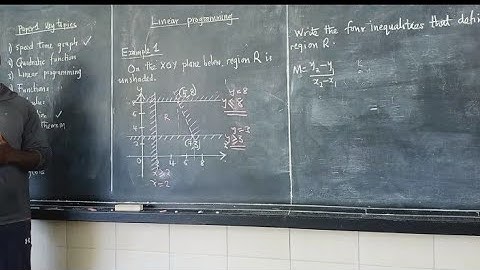 Paper 1 key topics
1) Speed time graph ✓
2) Quadratic function
3) Linear programming
Functions
Linear programming
Example 1
On the XOY plane below, region R is
unshaded.
y
(5,8)
y=8
y ≤ 8
R
y=3
y ≥ 3
(7,3)
0
2
4
6
x ≥ 2
x=2
Write the four inequalities that
region R.
M = y₂ - y₁
x₂ - x₁
=